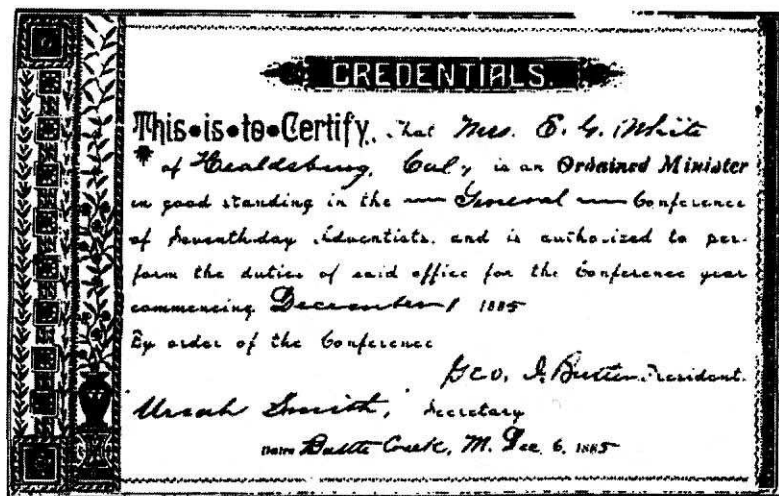 CREDENTIALS.
This is to Certify, That Mrs. E. G. White
of Healdsburg, Cal, is an Ordained Minister
in good standing in the General Conference
of Seventh-day Adventists, and is authorized to per-
form the duties of said office for the Conference year
commencing December 1 1885
By order of the Conference
Geo. I. Butler President.
Uriah Smith, Secretary
Battle Creek, M. Dec. 6, 1885